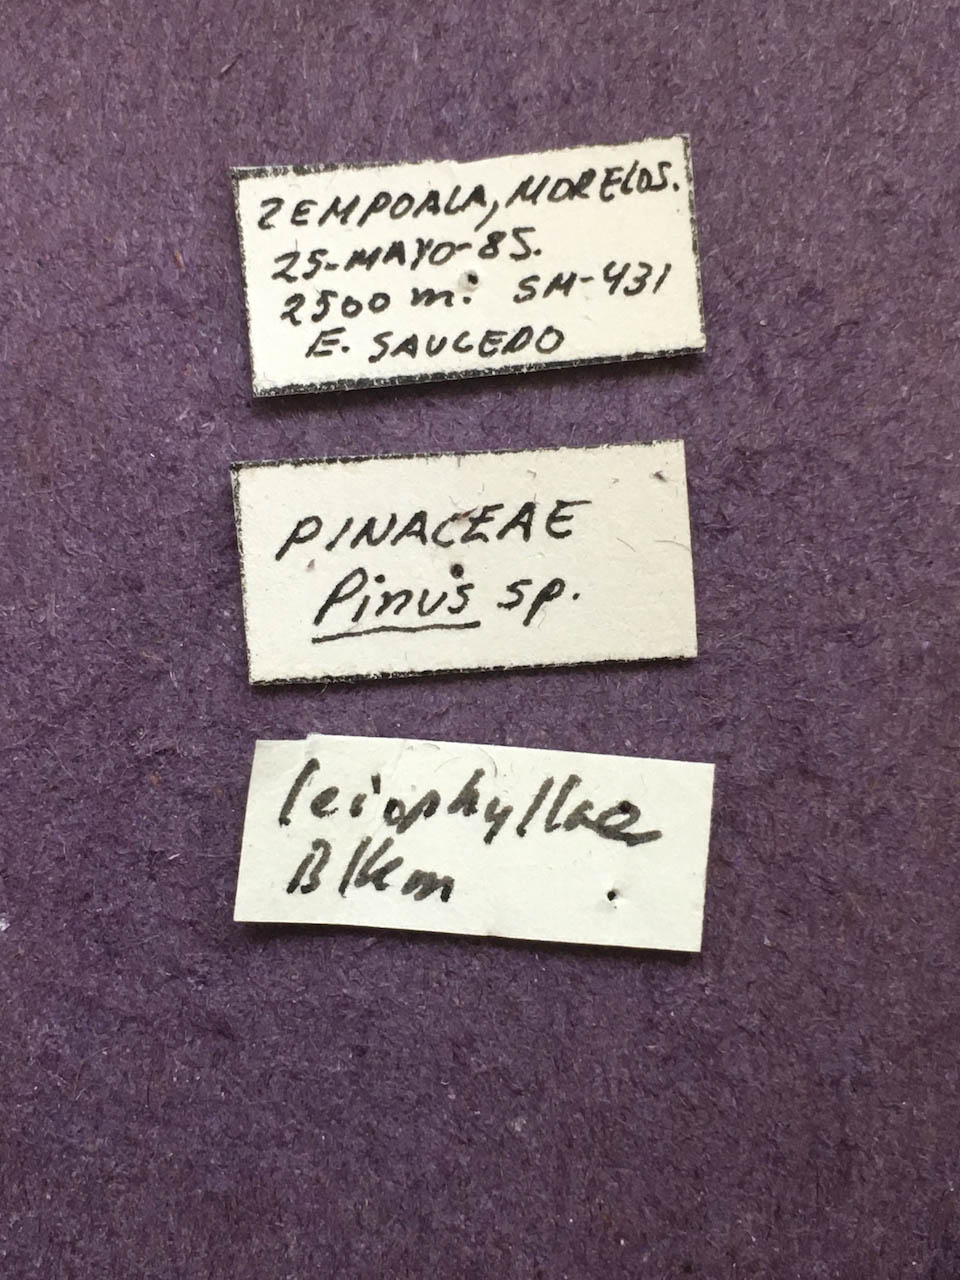 ZEMPOALA, MORELOS.
25-MAYO-85.
2500 m. SM-431
E. SAUCEDO
PINACEAE
Pinus sp.
leiophyllae
Blkm